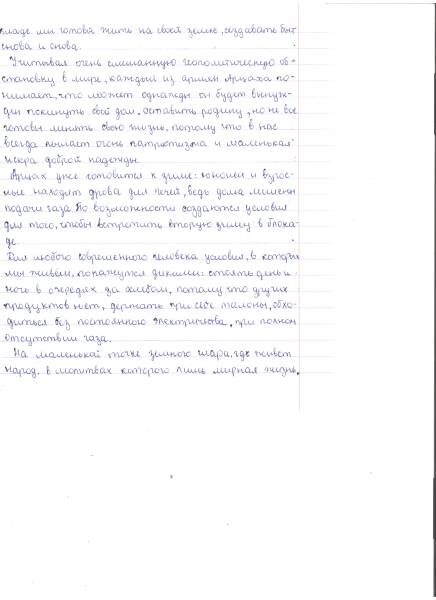 кладе мы готова жить на своей земле, создавать быт
снова и снова.
Учитывая очень смешанную геополитическую об-
становку в мире, каждый из армян Арцаха по-
нимает, что может однажды он будет вынуж-
ден покинуть свой дом, оставить родину, но не все
готовы менять свою жизнь, потому что в нас
всегда пылает огонь патриотизма и маленькая
искра доброй надежды.
Арцах уже готовится к зиме: юноши и взрос-
лые находят дрова для печей, ведь дома лишены
подачи газа. По возможности создаются условия
для того, чтобы встретить вторую зиму в блока-
де.
Для любого современного человека условия, в которых
мы живём, покажутся дикими: стоять день и
ночь в очередях за хлебом, потому что других
продуктов нет, держать при себе талоны, обхо-
диться без постоянного электричества, при полном
отсутствии газа.
На маленькой точке земного шара, где живет
народ, в молитвах которого лишь мирная жизнь,